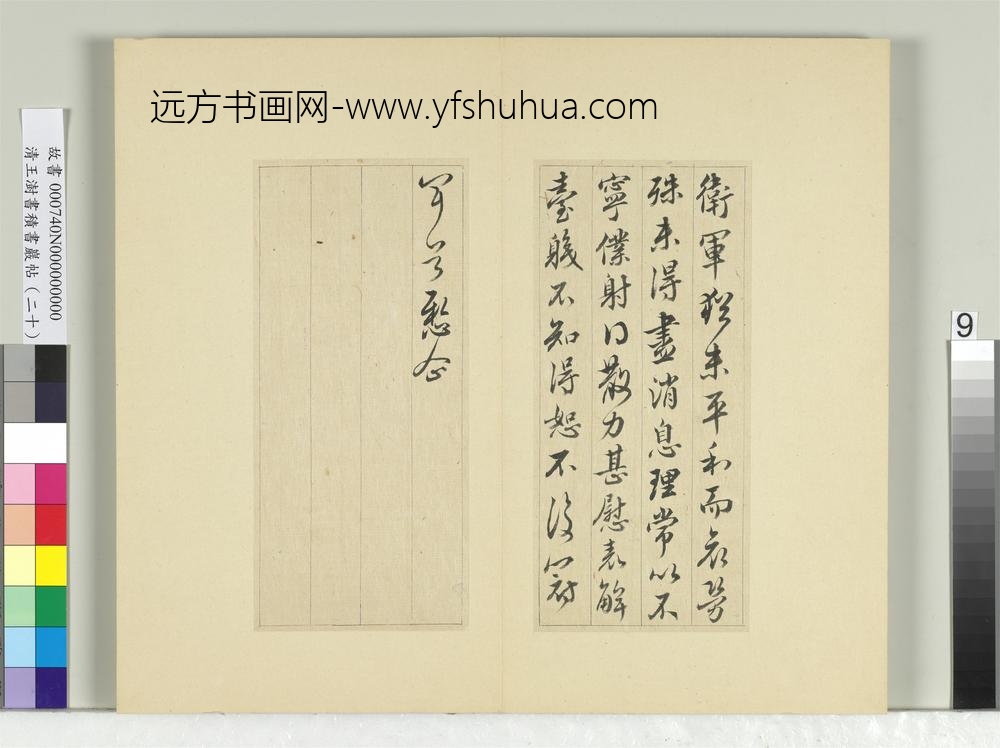 远方书画网-www.yfshuhua.com
故書 000740N000000000
清王澍書積書巖帖（二十）
衛軍猶未平和而哀勞
殊未得盡消息理常以不
寧僕射散力甚慰表解
臺職不知得恕不復
愁企
9